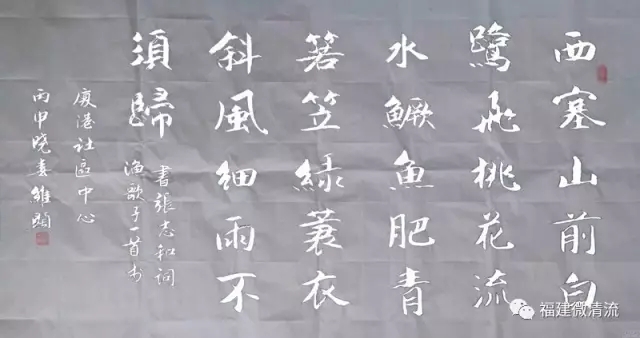 西塞山前白
鷺飛桃花流
水鱖魚肥青
箬笠綠蓑衣
斜風細雨不
須歸
書張志和詞
漁歌子一首於
厦港社區中心
丙申
福建微清流